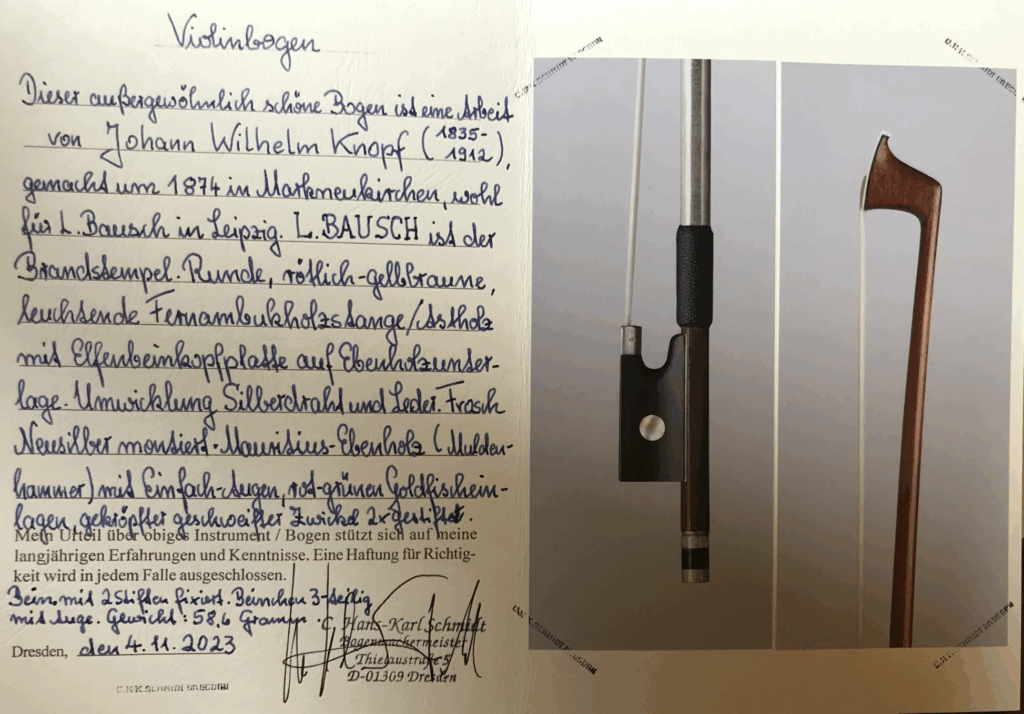 Violinbogen
Dieser außergewöhnlich schöne Bogen ist eine Arbeit
von Johann Wilhelm Knopf (1835-
1912),
gemacht um 1874 in Markneukirchen, wohl
für L. Bausch in Leipzig. L. BAUSCH ist der
Brandstempel. Runde, rötlich-gelbbraune,
leuchtende Fernambukholzstange/Astholz
mit Elfenbeinkopfplatte auf Ebenholzunter-
lage. Umwicklung Silberdraht und Leder. Frosch
Neusilber montiert. Mauritius-Ebenholz (Mulden-
hammer) mit Einfach-Augen, rot-grünen Goldfischein-
lagen, gekröpfter geschweifter Zwickel 2x gestiftet.
Mein Urteil über obiges Instrument / Bogen stützt sich auf meine
langjährigen Erfahrungen und Kenntnisse. Eine Haftung für Richtig-
keit wird in jedem Falle ausgeschlossen.
Bein mit 2 Stiften fixiert. Beinchen 3-teilig
mit Auge. Gewicht: 58,6 Gramm.
C. Hans-Karl Schmidt
Bogenmachermeister
Dresden, den 4. 11. 2023
D-01309 Dresden
C.H.K.SCHMIDT DRESDEN
C.H.K.SCHMIDT DRESDEN
C.H.K.SCHMIDT DRESDEN
C.H.K.SCHMIDT DRESDEN
C.H.K.SCHMIDT DRESDEN